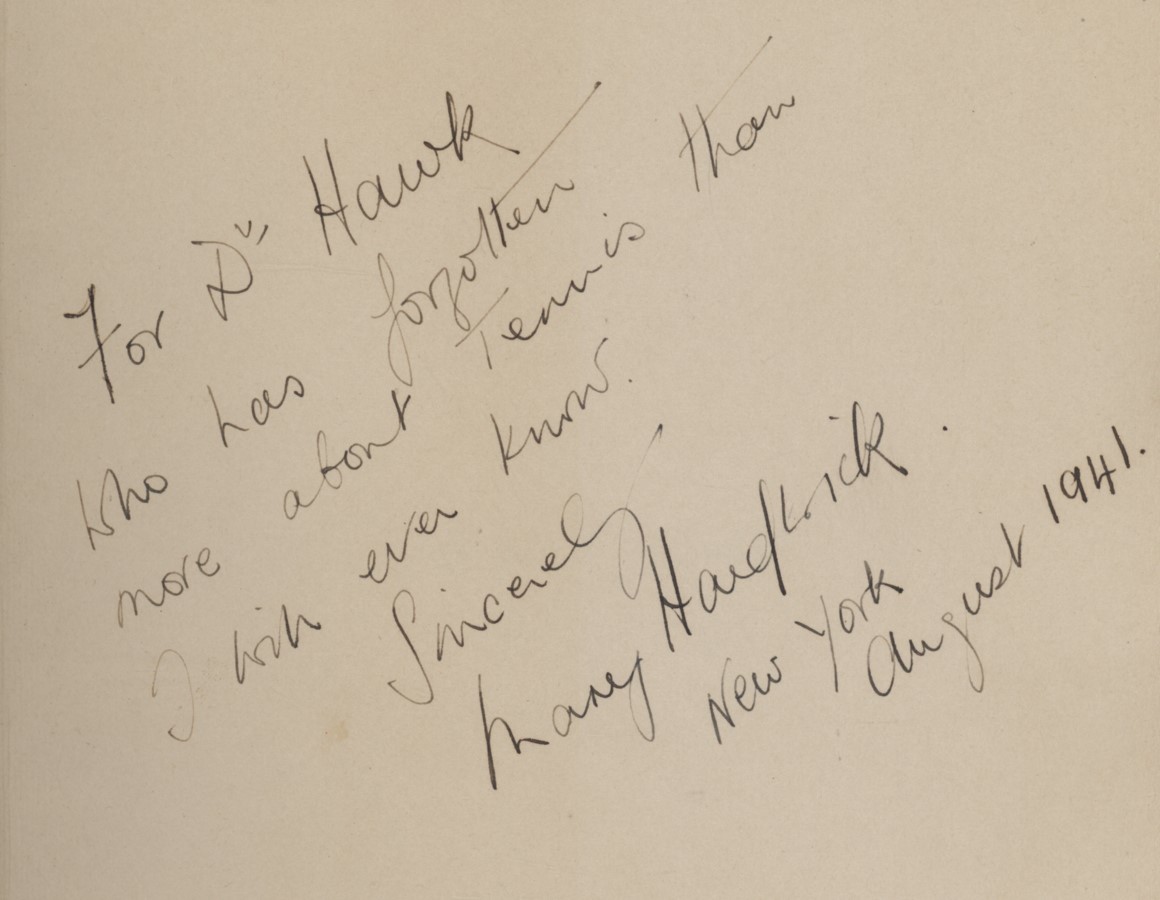 For Dr Hawk
who has forgotten
more about Tennis than
I will ever know.
Sincerely
Mary Hardwick.
New York
August 1941.